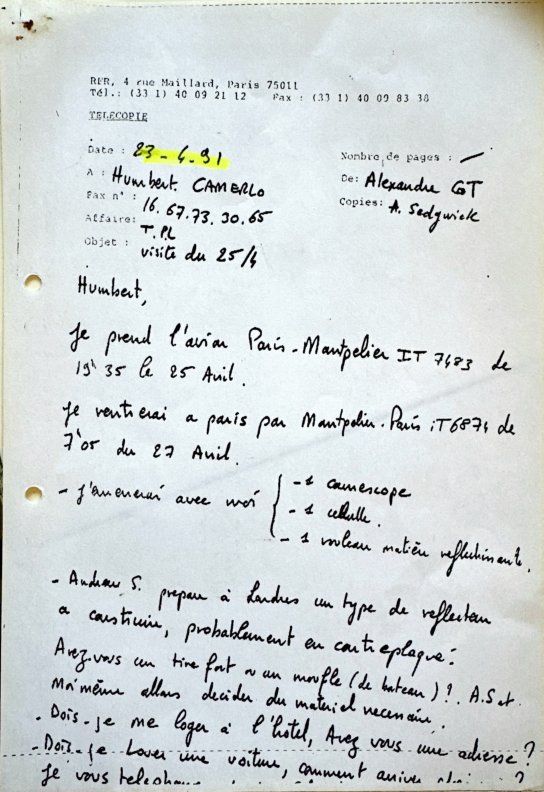 RFR, 4 rue Maillard, Paris 75011
Tél.: (33 1) 40 09 21 12 Fax : (33 1) 40 09 83 38
TELECOPIE
Date : 23-4-91
Nombre de pages : /
A : Humbert CAMERLO
De: Alexandre GT
Fax n° : 16.67.73.30.65
Copies: A. Sedgwick
Affaire: T.PL
Objet : visite du 25/4
Humbert,
Je prend l'avion Paris-Montpelier IT 7483 de
19h35 le 25 Avril.
Je rentrerai a paris par Montpelier-Paris iT6874 de
7h05 du 27 Avril.
- J'amenerai avec moi
- 1 camescope
- 1 cellulle.
- 1 rouleau matière reflechissante.
- Andrew S. prepare à Londres un type de reflecteur
a construire, probablement en contreplaqué.
Avez-vous un tire fort ou un moufle (de bateau)?. A.S et
moi même allons decider du materiel necessaire.
- Dois-je me loger à l'hôtel, Avez vous une adresse?
- Dois-je Louer une voiture, comment arriver ?
Je vous telephone